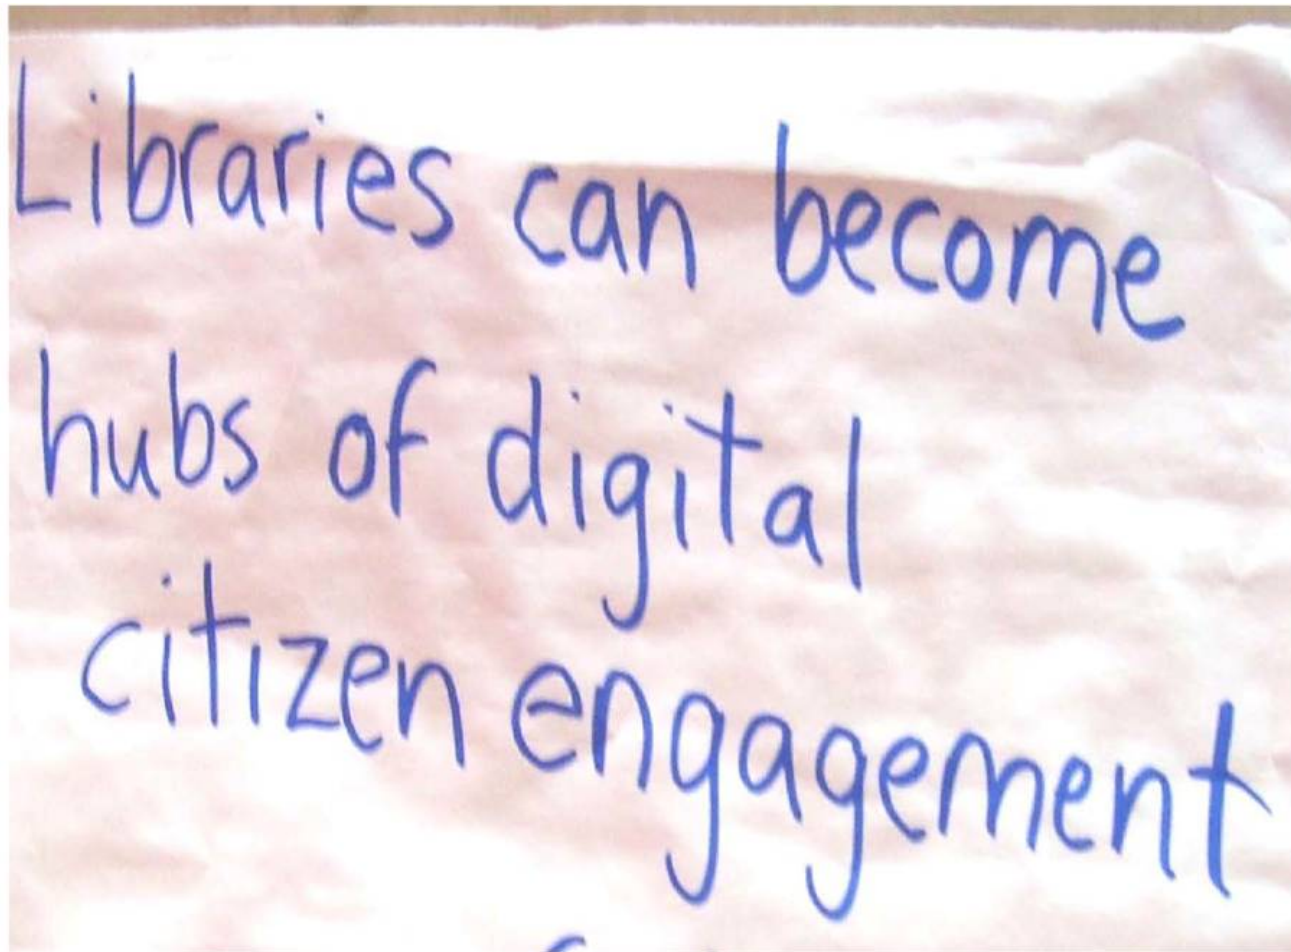 Libraries can become
hubs of digital
citizen engagement